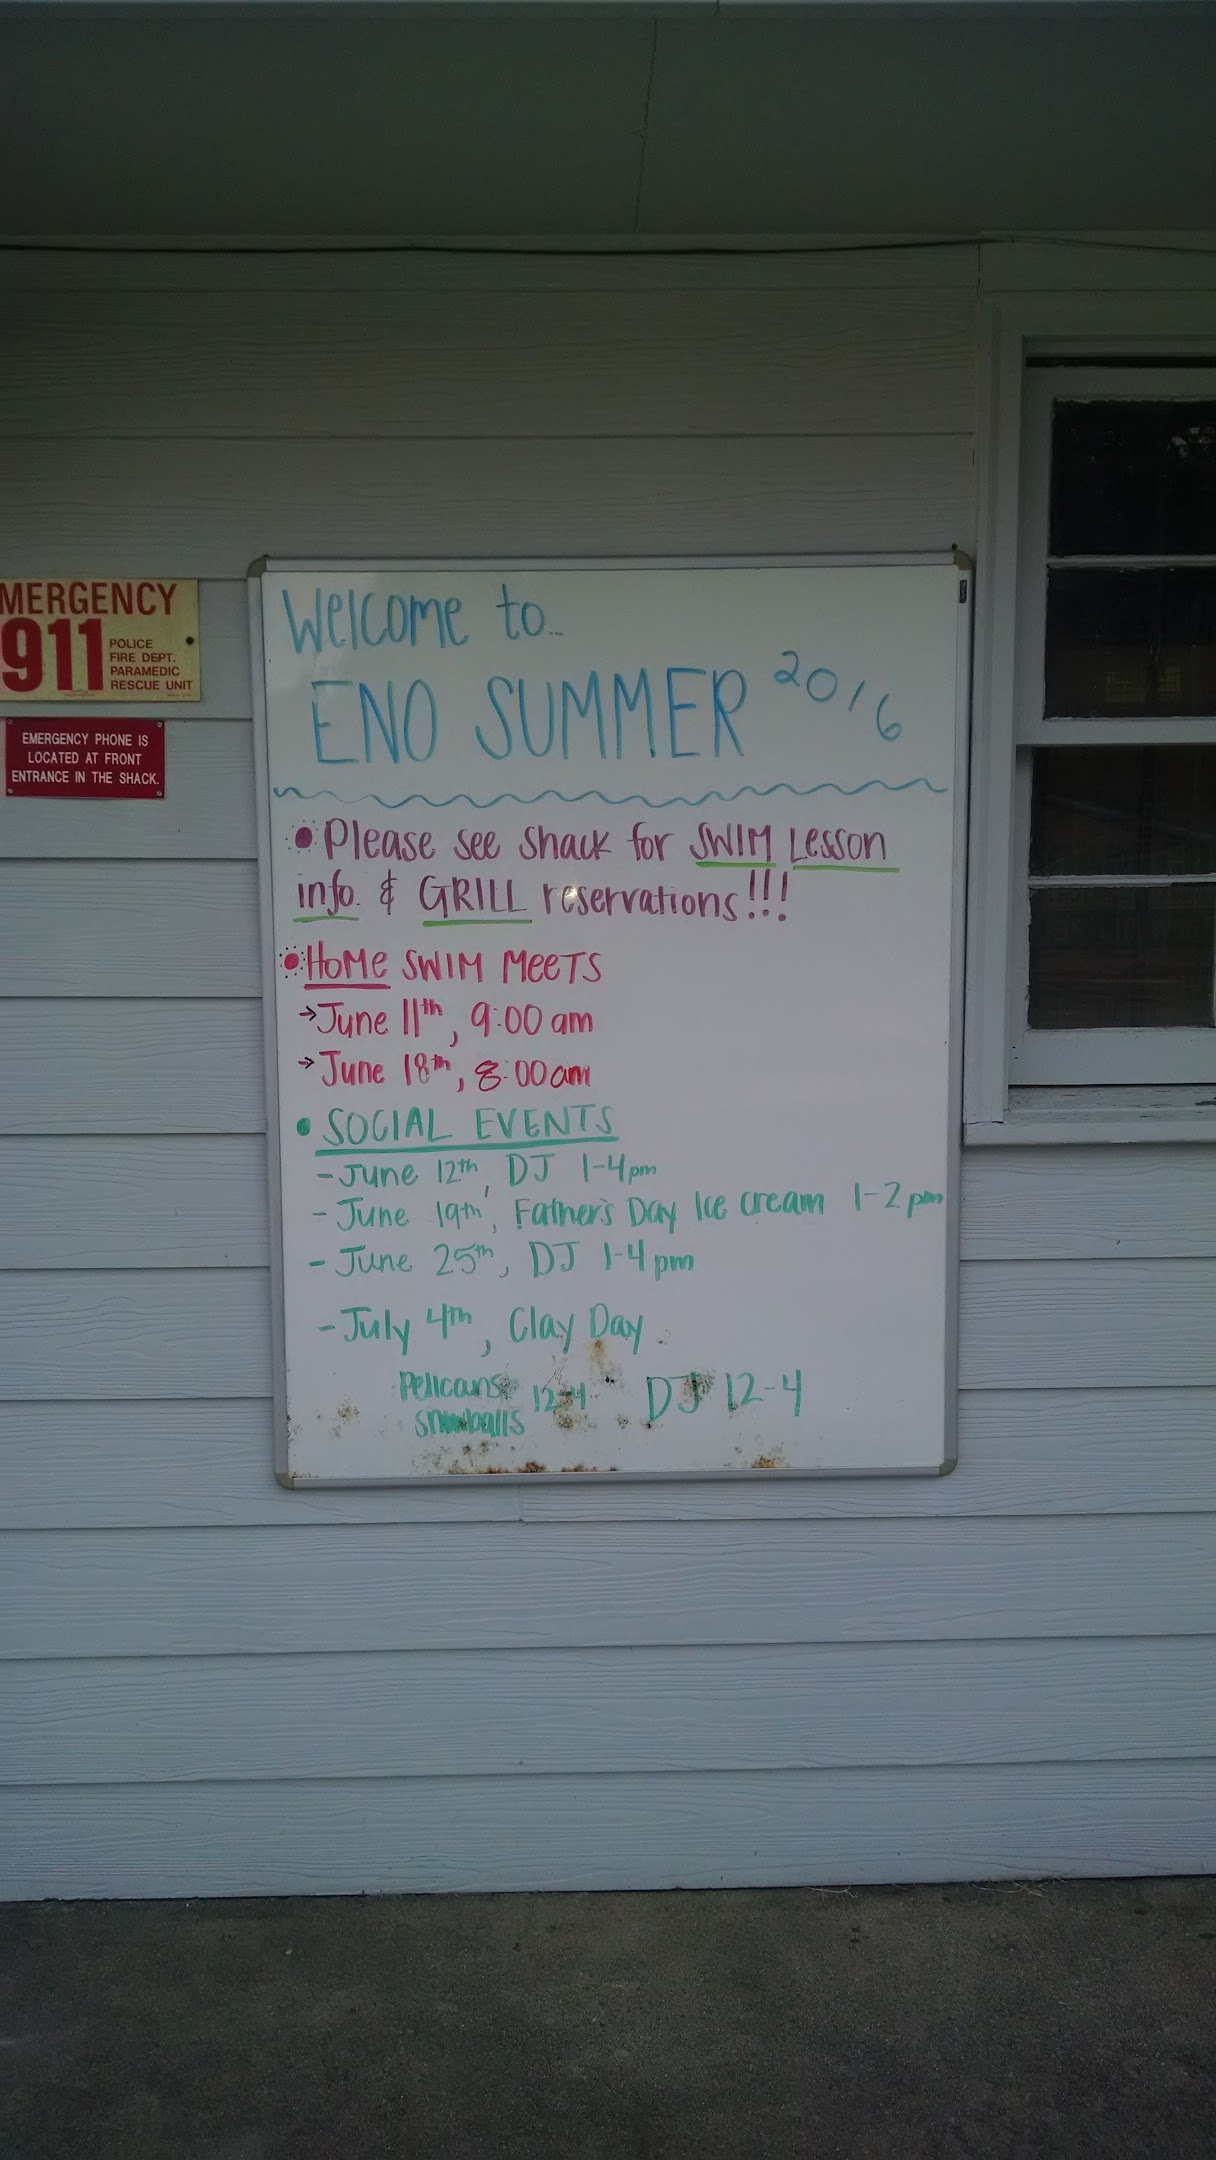 MERGENCY
911
POLICE
FIRE DEPT.
PARAMEDIC
RESCUE UNIT
EMERGENCY PHONE IS
LOCATED AT FRONT
ENTRANCE IN THE SHACK.
Welcome to...
ENO SUMMER 2016
• Please see shack for SWIM Lesson
info. & GRILL reservations!!!
• HOME SWIM MEETS
→ June 11th, 9:00 am
→ June 18th, 8:00 am
• SOCIAL EVENTS
- June 12th, DJ 1-4pm
- June 19th, Father's Day Ice cream 1-2 pm
- June 25th, DJ 1-4 pm
- July 4th, Clay Day
Pelicans 12-4 DJ 12-4
snowballs